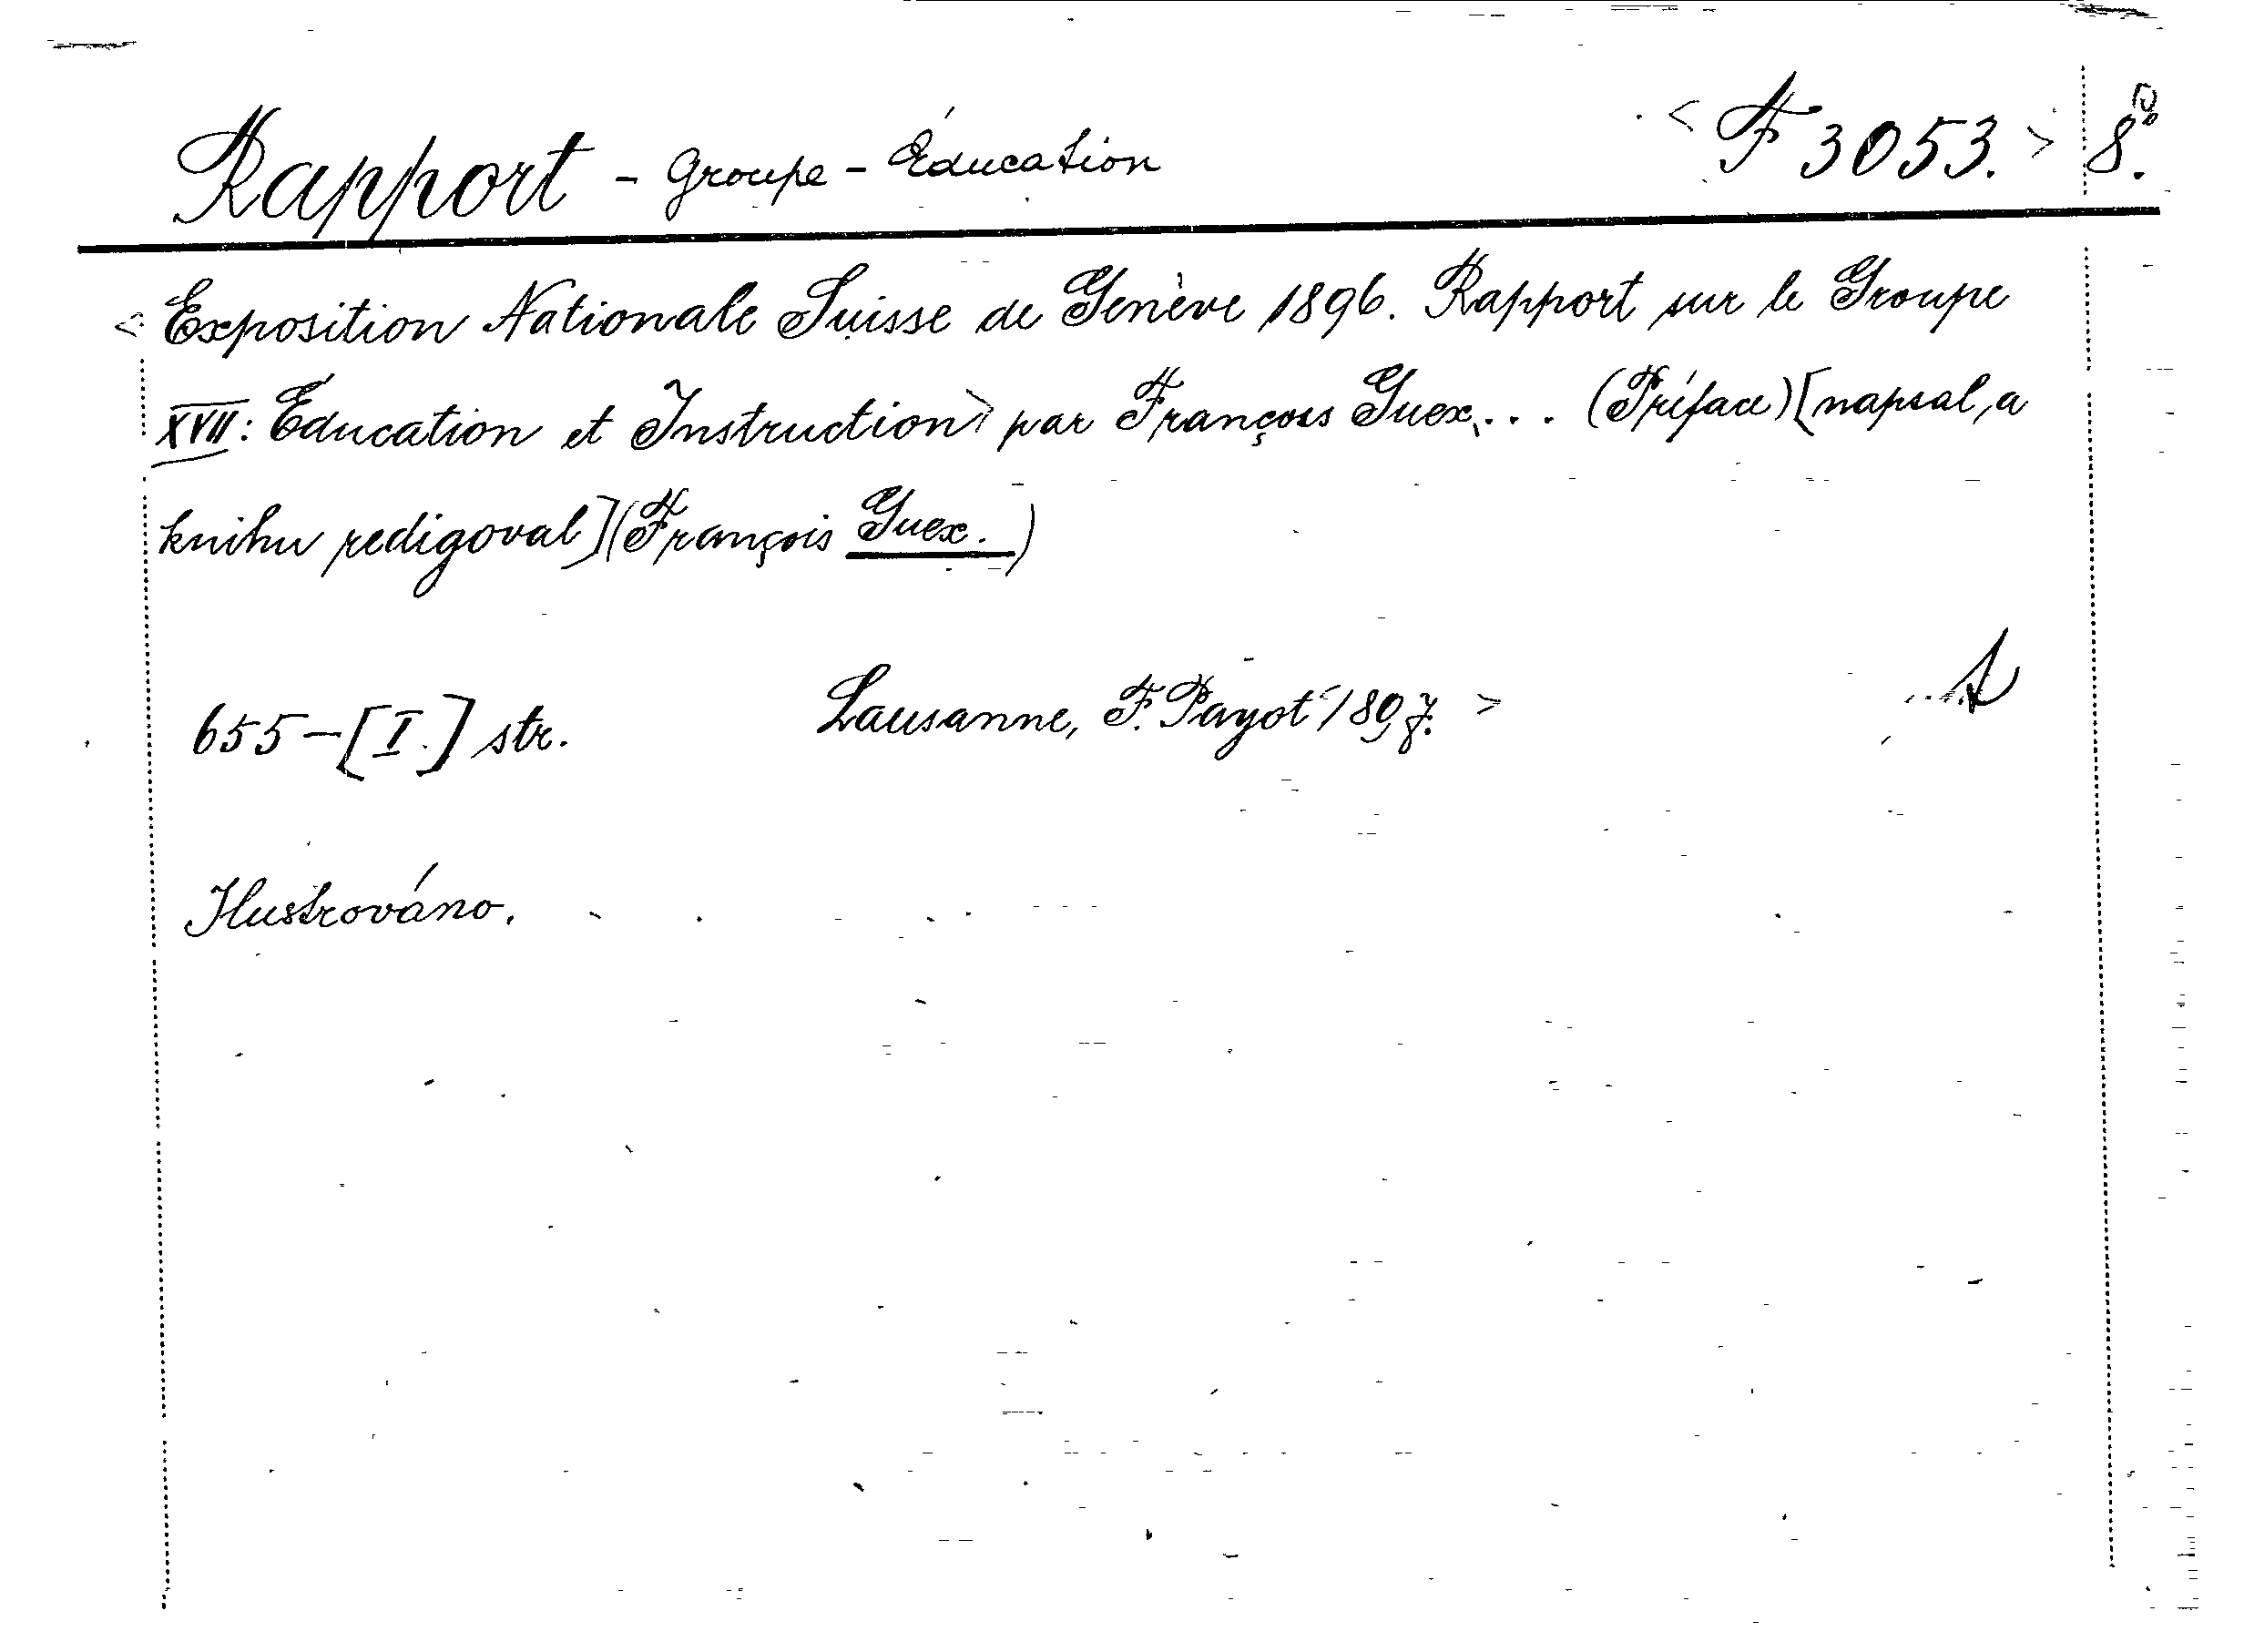 Rapport - Groupe - Éducation < F 3053. > 8°.
< Exposition Nationale Suisse de Genève 1896. Rapport sur le Groupe
XVII: Éducation et Instruction > par François Guex... (Préface) [napsal, a
knihu redigoval] (François Guex.)
655-[I.] str. Lausanne, F. Payot 1897. >
Ilustrováno.